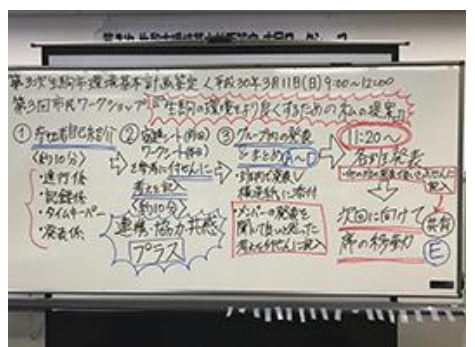 第3次生駒市環境基本計画策定 平成30年3月11日(日)9:00~12:00
第3回市民ワークショップ 『生駒の環境をより良くするための私の提案』
① 参加者自己紹介
〈約10分〉
・進行係
・記録係
・タイムキーパー
・発表係
② 宿題シート
ワークシート
を参考に付せんに
考えを記入
〈約10分〉
連携・協力・共感
プラス
③ グループ内の発表
&まとめ A~D
模造紙に添付
・メンバーの発表を
聞いて良いと思った
考えも付せんに記入
11:20~
各班発表
次回に向けて
席の移動
共有
E